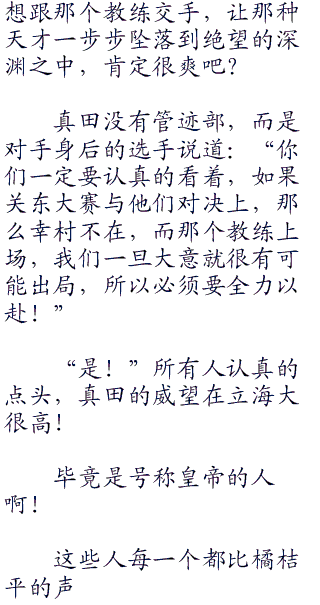 想跟那个教练交手，让那种
天才一步步坠落到绝望的深
渊之中，肯定很爽吧？
真田没有管迹部，而是
对手身后的选手说道：“你
们一定要认真的看着，如果
关东大赛与他们对决上，那
么幸村不在，而那个教练上
场，我们一旦大意就很有可
能出局，所以必须要全力以
赴！”
“是！”所有人认真的
点头，真田的威望在立海大
很高！
毕竟是号称皇帝的人
啊！
这些人每一个都比橘桔
平的声